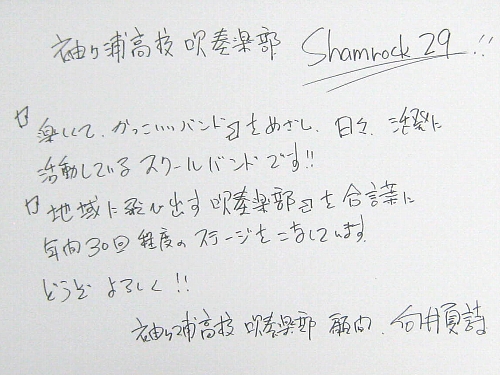 袖ヶ浦高校 吹奏楽部 Shamrock 29 !!
『楽しくて、かっこいいバンド』をめざし、日々、活発に
活動しているスクールバンドです!!
『地域に飛び出す吹奏楽部』を合言葉に
年間30回程度のステージをこなしています。
どうぞよろしく!!
袖ヶ浦高校 吹奏楽部 顧問、向井